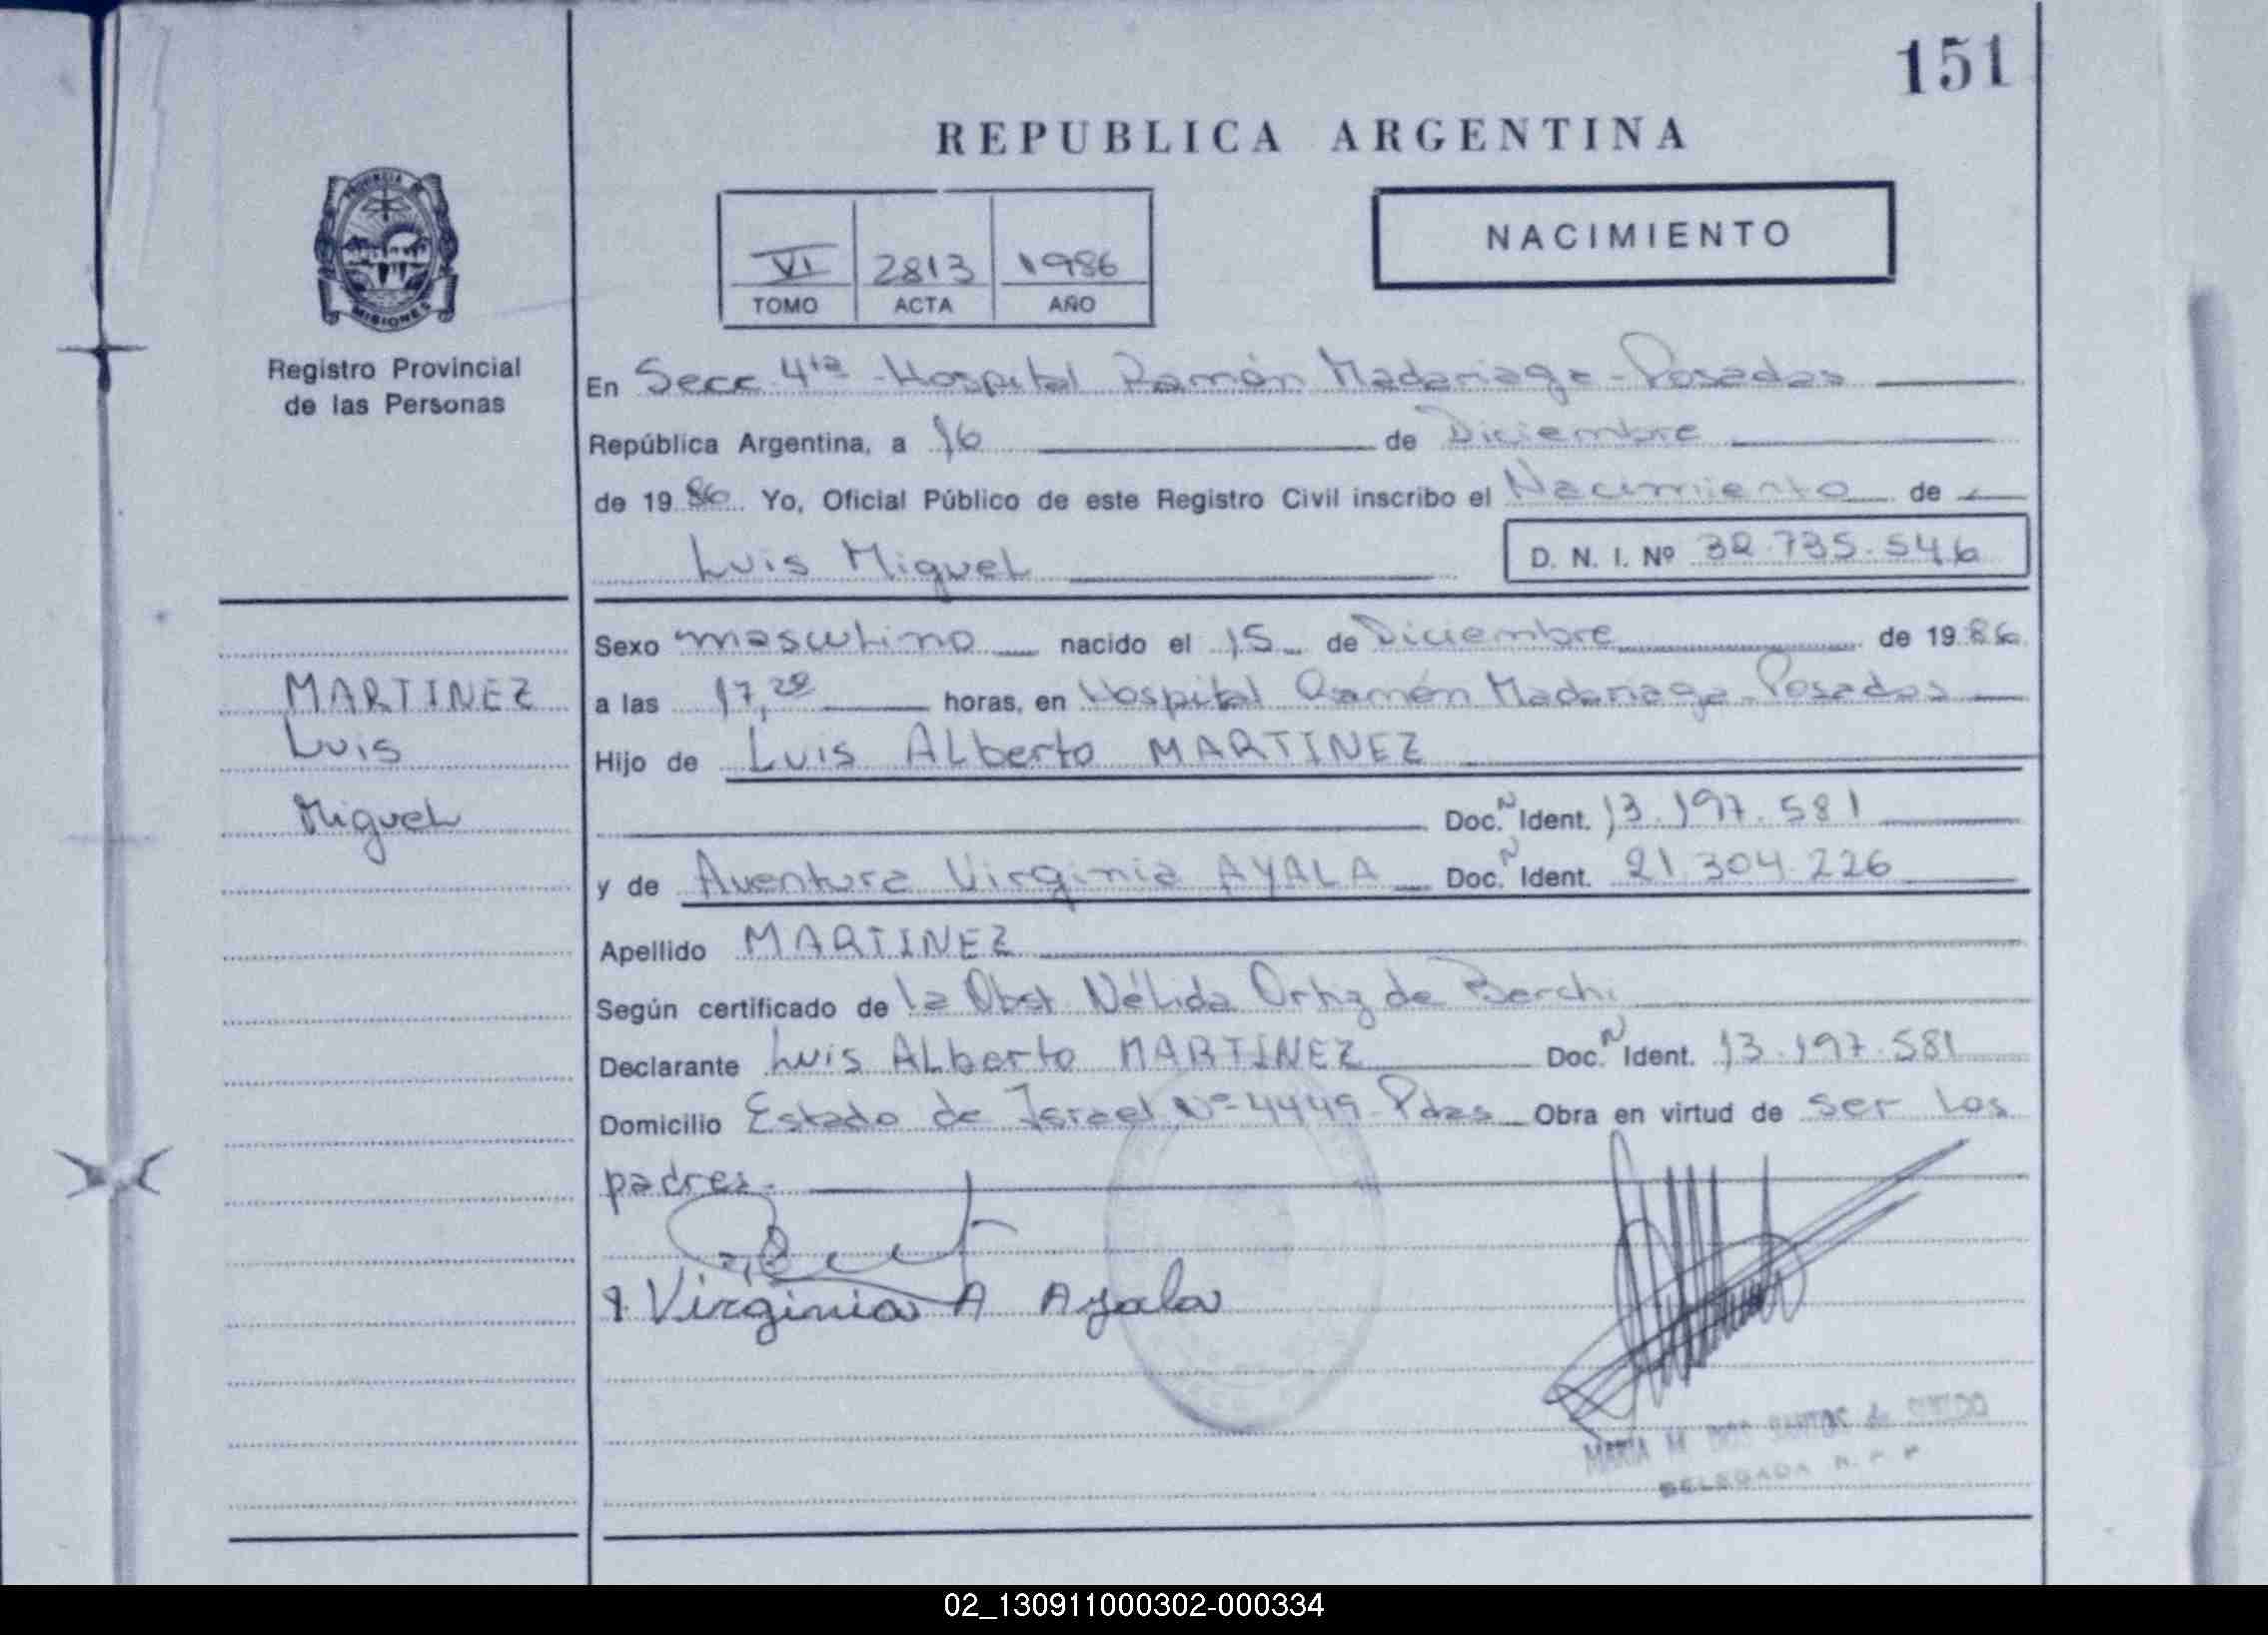 151
REPUBLICA ARGENTINA
PROVINCIA DE
MISIONES
Registro Provincial
de las Personas
VI 2813 1986
TOMO ACTA AÑO
NACIMIENTO
En Secc. 4ta - Hospital Ramón Madariaga - Posadas
República Argentina, a 16 de Diciembre
de 1986 Yo, Oficial Público de este Registro Civil inscribo el Nacimiento de
Luis Miguel D. N. I. Nº 32.735.546
MARTINEZ
Luis
Miguel
Sexo masculino nacido el 15 de Diciembre de 1986
a las 17,20 horas, en Hospital Ramón Madariaga - Posadas
Hijo de Luis Alberto MARTINEZ
Doc. N Ident. 13.197.581
y de Aventura Virginia AYALA Doc. N Ident. 21.304.226
Apellido MARTINEZ
Según certificado de la Obst. Nélida Ortiz de Berchi
Declarante Luis Alberto MARTINEZ Doc. N Ident. 13.197.581
Domicilio Estado de Israel Nº 4449 - Pdas Obra en virtud de ser los
padres.-
Virginia A Ayala
MARIA M DOS SANTOS de
DELEGADA R. P. P.
02_130911000302-000334